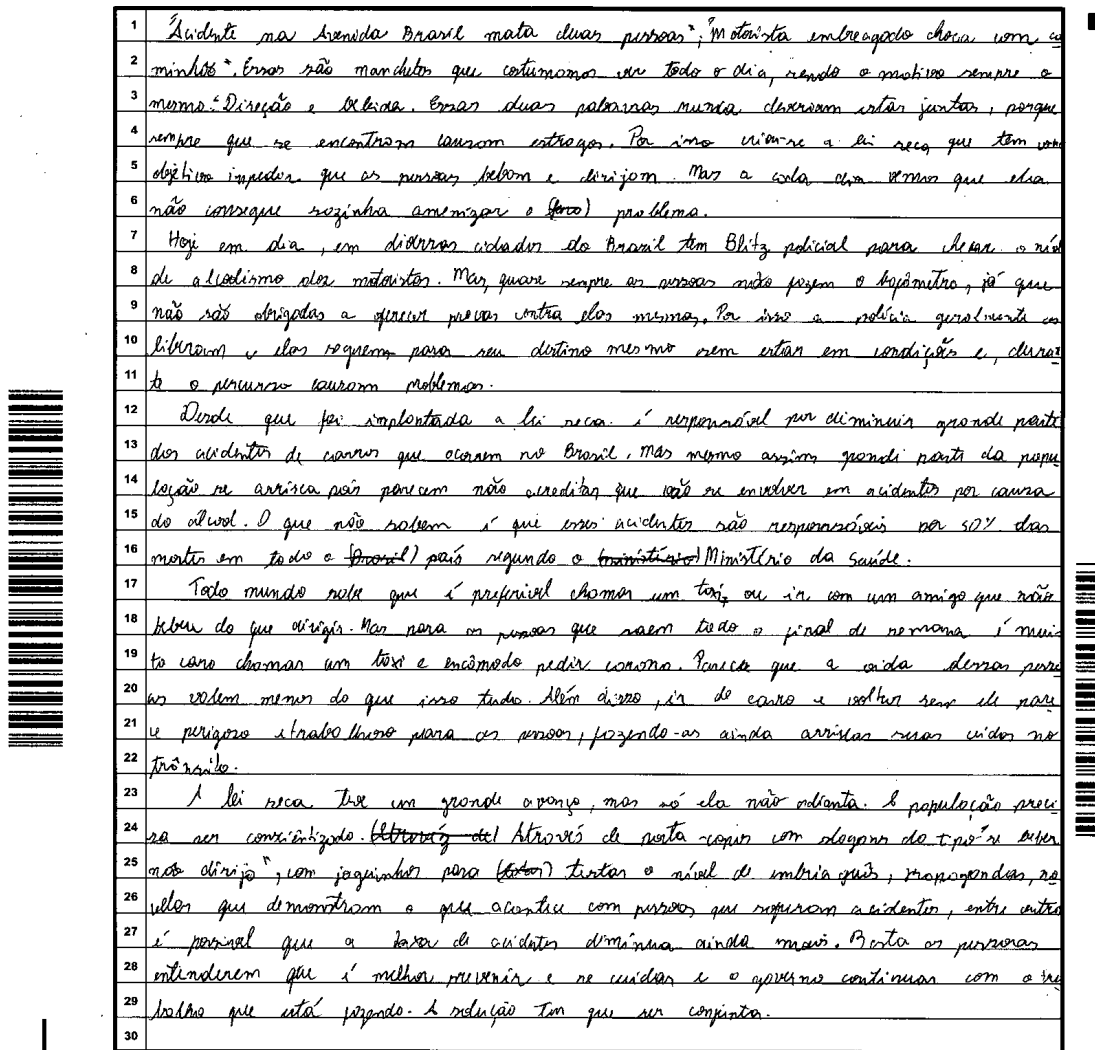 1 "Acidente na Avenida Brasil mata duas pessoas", "Motorista embreagado choca com ca
2 minhão". Essas são manchetes que costumamos ver todo o dia, sendo o motivo sempre o
3 mesmo: Direção e bebida. Essas duas palavras nunca deveriam estar juntas, porque
4 sempre que se encontram causam estragos. Por isso criou-se a lei seca que tem como
5 objetivo impedir que as pessoas bebam e dirijam. Mas a cada dia vemos que ela
6 não consegue sozinha amenizar o problema.
7 Hoje em dia, em diversas cidades do Brasil tem Blitz policial para checar o nível
8 de alcoolismo dos motoristas. Mas, quase sempre as pessoas não fazem o bafômetro, já que
9 não são obrigadas a oferecer provas contra elas mesmas. Por isso a polícia geralmente as
10 liberam e elas seguem para seu destino mesmo sem estar em condições e, duran
11 te o percurso causam problemas.
12 Desde que foi implantada a lei seca é responsável por diminuir grande parte
13 dos acidentes de carros que ocorrem no Brasil. Mas mesmo assim grande parte da popu
14 lação se arrisca pois parecem não acreditar que vão se envolver em acidentes por causa
15 do álcool. O que não sabem é que esses acidentes são responsáveis por 50% das
16 mortes em todo o (Brasil) país segundo o (ministério) Ministério da Saúde.
17 Todo mundo sabe que é preferível chamar um taxi, ou ir com um amigo que não
18 bebeu do que dirigir. Mas para as pessoas que saem todo o final de semana é mui
19 to caro chamar um táxi e encômodo pedir carona. Parece que a vida dessas pesso
20 as valem menos do que isso tudo. Além disso, ir de carro e voltar sem ele pare
21 ce perigoso e trabalhoso para as pessoas, fazendo-as ainda arriscar suas vidas no
22 trânsito.
23 A lei seca teve um grande avanço, mas só ela não adianta. A população preci
24 sa ser conscientizada. (Atravéz de) Através de porta-copos com slogans do tipo "se beber
25 não dirija", com joguinhos para testar o nível de embriaguês, propagandas, no
26 velas que demonstram o que acontece com pessoas que sofreram acidentes, entre outro
27 é possível que a taxa de acidentes diminua ainda mais. Basta as pessoas
28 entenderem que é melhor prevenir e se cuidar e o governo continuar com o tra
29 balho que está fazendo. A solução tem que ser conjunta.
30